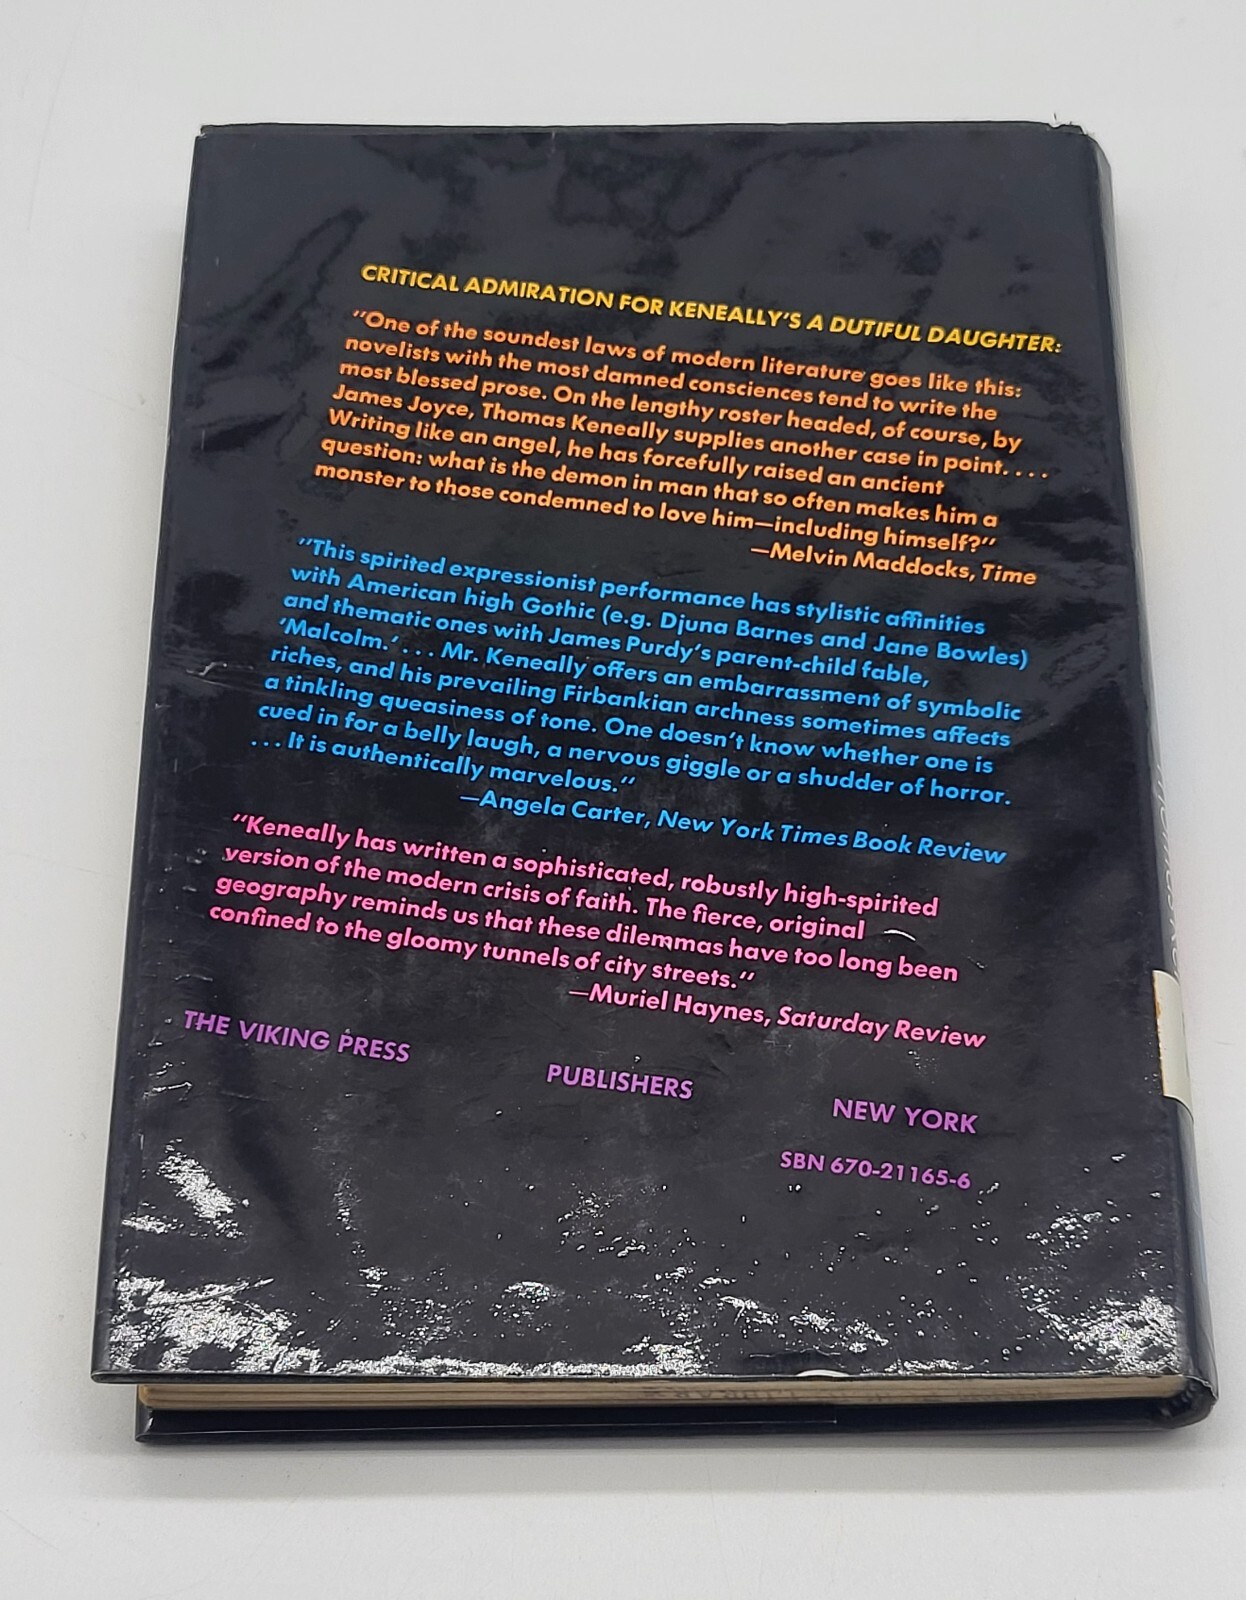 CRITICAL ADMIRATION FOR KENEALLY'S A DUTIFUL DAUGHTER:
"One of the soundest laws of modern literature goes like this:
novelists with the most damned consciences tend to write the
most blessed prose. On the lengthy roster headed, of course, by
James Joyce, Thomas Keneally supplies another case in point. . . .
Writing like an angel, he has forcefully raised an ancient
question: what is the demon in man that so often makes him a
monster to those condemned to love him—including himself?"
—Melvin Maddocks, Time
"This spirited expressionist performance has stylistic affinities
with American high Gothic (e.g. Djuna Barnes and Jane Bowles)
and thematic ones with James Purdy's parent-child fable,
'Malcolm.' . . . Mr. Keneally offers an embarrassment of symbolic
riches, and his prevailing Firbankian archness sometimes affects
a tinkling queasiness of tone. One doesn't know whether one is
cued in for a belly laugh, a nervous giggle or a shudder of horror.
. . . It is authentically marvelous."
—Angela Carter, New York Times Book Review
"Keneally has written a sophisticated, robustly high-spirited
version of the modern crisis of faith. The fierce, original
geography reminds us that these dilemmas have too long been
confined to the gloomy tunnels of city streets."
—Muriel Haynes, Saturday Review
THE VIKING PRESS PUBLISHERS NEW YORK
SBN 670-21165-6